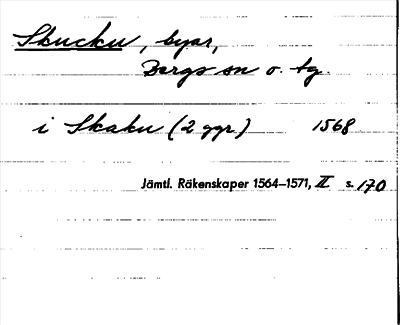 Skucku, byar,
Bergs sn o. tg.
i Skaku (2 ggr.) 1568
Jämtl. Räkenskaper 1564–1571, II s. 170